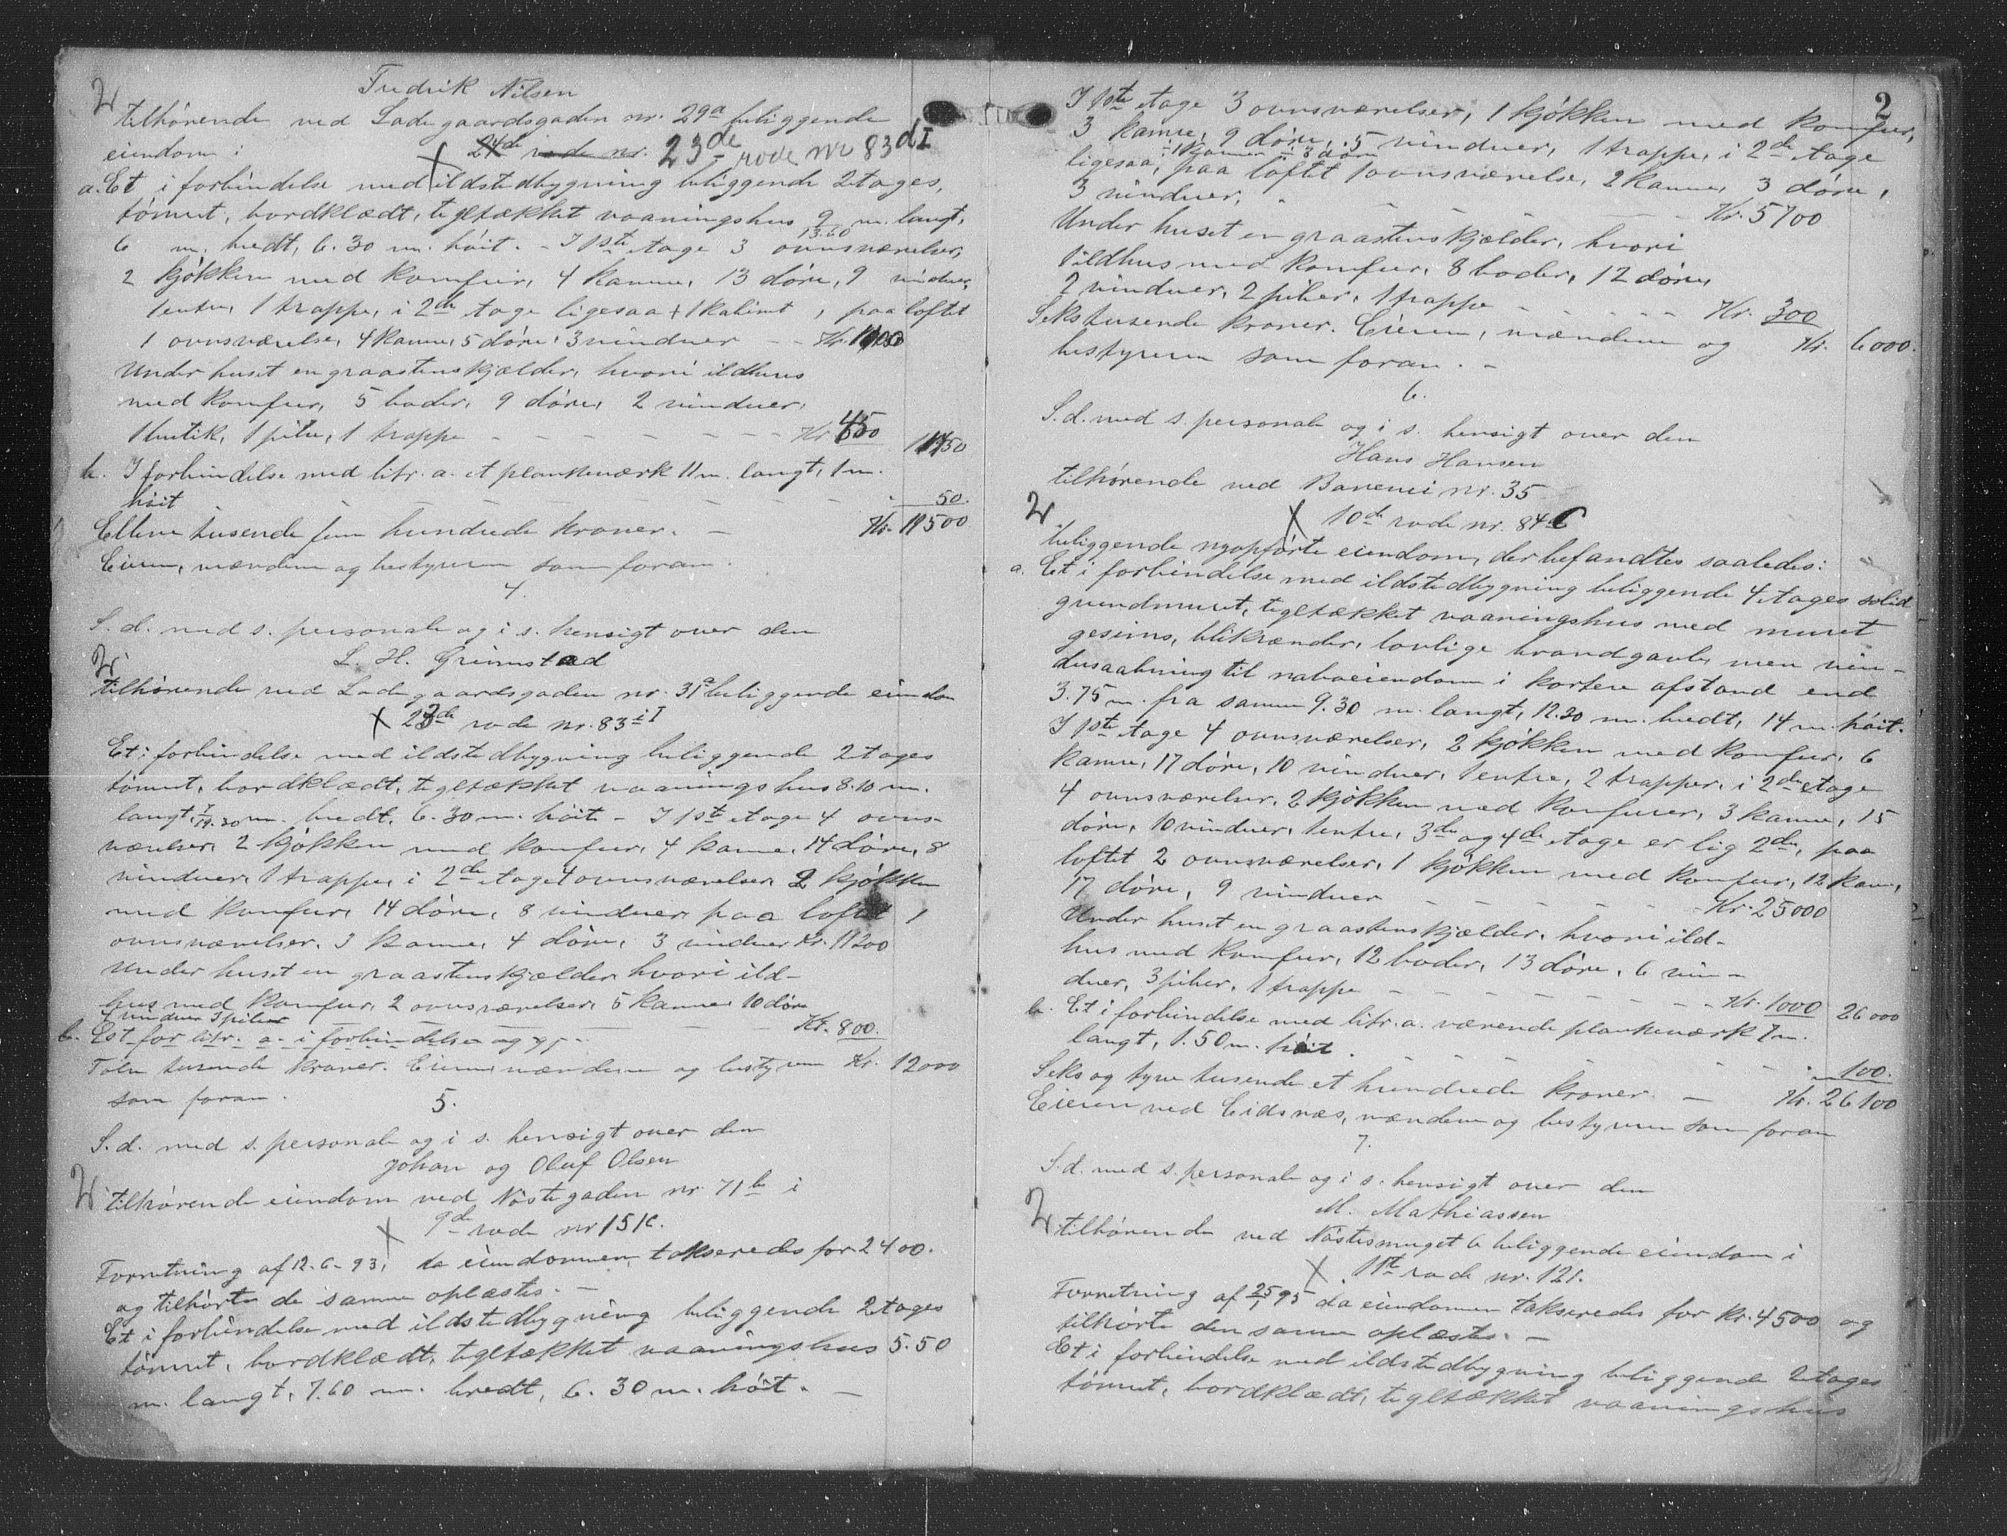 Fredrik Nilsen
tilhørende ved Ladegaardsgaden nr. 29a beliggende
eiendom:
24de rode nr. 23de rode nr 83dI
a. Et i forbindelse med ildstedbygning beliggende 2 etages,
tømret, bordklædt, tegltækket vaaningshus 9 m. langt,
13.60
6 m. bredt, 6.30 m. høit. - I 1ste etage 3 ovnsværelser,
2 kjøkken med komfur, 4 kamre, 13 døre, 9 vinduer,
1 entre, 1 trappe, i 2de etage ligesaa + 1 kabinet, paa loftet
1 ovnsværelse, 4 kamre, 5 døre, 3 vinduer - - Kr. 11000
Under huset en graastenskjælder, hvori ildhus
med komfur, 5 boder, 9 døre, 2 vinduer,
1 butik, 1 piber, 1 trappe - - - - - - - Kr 450
11450
b. I forbindelse med litr. a. et plankeværk 11 m. langt, 1 m.
høit - - - - - - 50.
Elleve tusende fem hundrede kroner. - Kr. 11500
Eieren, mændene og bestyreren som foran.
4.
S. d. med s. personale og i s. hensigt over den
2
L. H. Grimstad
tilhørende ved Ladegaardsgaden nr. 31a beliggende eiendom
X 23de rode nr. 83iI
Et i forbindelse med ildstedbygning beliggende 2 etages
tømret, bordklædt, tegltækket vaaningshus 8.10 m.
langt, 14.30 m. bredt, 6.30 m. høit - I 1ste etage 4 ovns-
værelser, 2 kjøkken med komfur, 4 kamre, 14 døre, 8
vinduer, 1 trappe, i 2de etage 4 ovnsværelser, 2 kjøkken
med komfur, 14 døre, 8 vinduer, paa loftet 1
ovnsværelser, 3 kamre, 4 døre, 3 vinduer Kr. 11200
Under huset en graastenskjælder hvori ild-
hus med komfur, 2 ovnsværelser, 5 kamre, 10 døre
4 vinduer 3 piber - - - Kr. 800.
b. Est for litr. a. i forbindelse og
Tolv tusende kroner. Eieren, mændene og bestyreren Kr. 12000
som foran.
5.
S. d. med s. personale og i s. hensigt over den
Johan og Oluf Olsen
2 tilhørende eiendom ved Nøstegaden nr. 71b i
X 9de rode nr 151c.
Forretning af 12-6-93, da eiendommen takseredes for 2400.
og tilhørte de samme oplæstes. -
Et i forbindelse med ildstedbygning beliggende 2 etages
tømret, bordklædt, tegltækket vaaningshus 5.50
m. langt, 7.60 m. bredt, 6.30 m. høit. -
2
I 1ste etage 3 ovnsværelser, 1 kjøkken med komfur,
3 kamre, 9 døre, 5 vinduer, 1 trappe, i 2de etage
÷ 1 kammer ÷ 3 døre
ligesaa, paa loftet 1 ovnsværelse, 2 kamre, 3 døre,
3 vinduer, - - - - - Kr. 5700
Under huset en graastenskjælder, hvori
1 ildhus med komfur, 8 boder, 12 døre,
2 vinduer, 2 piber, 1 trappe - - - - - Kr. 300
Seks tusende kroner. Eieren, mændene og Kr. 6000.
bestyreren som foran. -
6.
S. d. med s. personale og i s. hensigt over den
Hans Hansen
tilhørende ved Baneveien nr. 35
2
X 10de rode nr. 84c
beliggende nyopførte eiendom, der befandtes saaledes:
a. Et i forbindelse med ildstedbygning beliggende 4 etages solid
grundmuret, tegltækket vaaningshus med muret
gesims, blikrænder, lovlige brandgavle, men vin-
duesaabning til naboeiendom i kortere afstand end
3.75 m. fra samme 9.30 m. langt, 12.20 m. bredt, 14 m. høit.
I 1ste etage 4 ovnsværelser, 2 kjøkken med komfur, 6
kamre, 17 døre, 10 vinduer, 1 entre, 2 trapper, i 2den etage
4 ovnsværelser, 2 kjøkken med komfurer, 3 kamre, 15
døre, 10 vinduer, 1 entre, 3de og 4de etage er lig 2den, paa
loftet 2 ovnsværelser, 1 kjøkken med komfur, 12 kamre,
17 døre, 9 vinduer - - - - - - - Kr. 25000
Under huset en graastenskjælder, hvori ild-
hus med komfur, 12 boder, 13 døre, 6 vin-
duer, 3 piber, 1 trappe - - - - - - - Kr. 1000 26000
b. Et i forbindelse med litr. a. værende plankeværk 7 m.
langt, 1.50 m. høit. - - - - - - 100.
Seks og tyve tusende et hundrede kroner. - Kr. 26100
Eieren ved Eidsnæs, mændene og bestyreren som foran
7.
S. d. med s. personale og i s. hensigt over den
M. Mathiassen
2 tilhørende ved Nøstesmuget 6 beliggende eiendom i
X 11te rode nr. 121.
Forretning af 25/1 95 da eiendommen takseredes for Kr. 4500 og
tilhørte den samme oplæstes. -
Et i forbindelse med ildstedbygning beliggende 2 etages
tømret, bordklædt, tegltækket vaaningshus